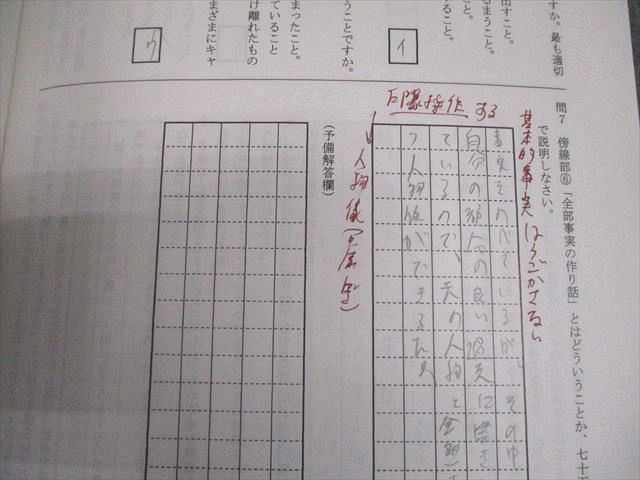 すか。最も適切
出すこと。
るまうこと。
こと。
ること。
イ
うことですか。
まったこと。
ていること
け離れたもの
まざまにキャ
ウ
問7 傍線部⑥「全部事実の作り話」とはどういうことか、七十五
で説明しなさい。
基本的事実はうごかさない
する
事実をのべているが、その中
自分の都合の良い
ているので、元の人物と全部
う人物像ができるため
人物像
(予備解答欄)